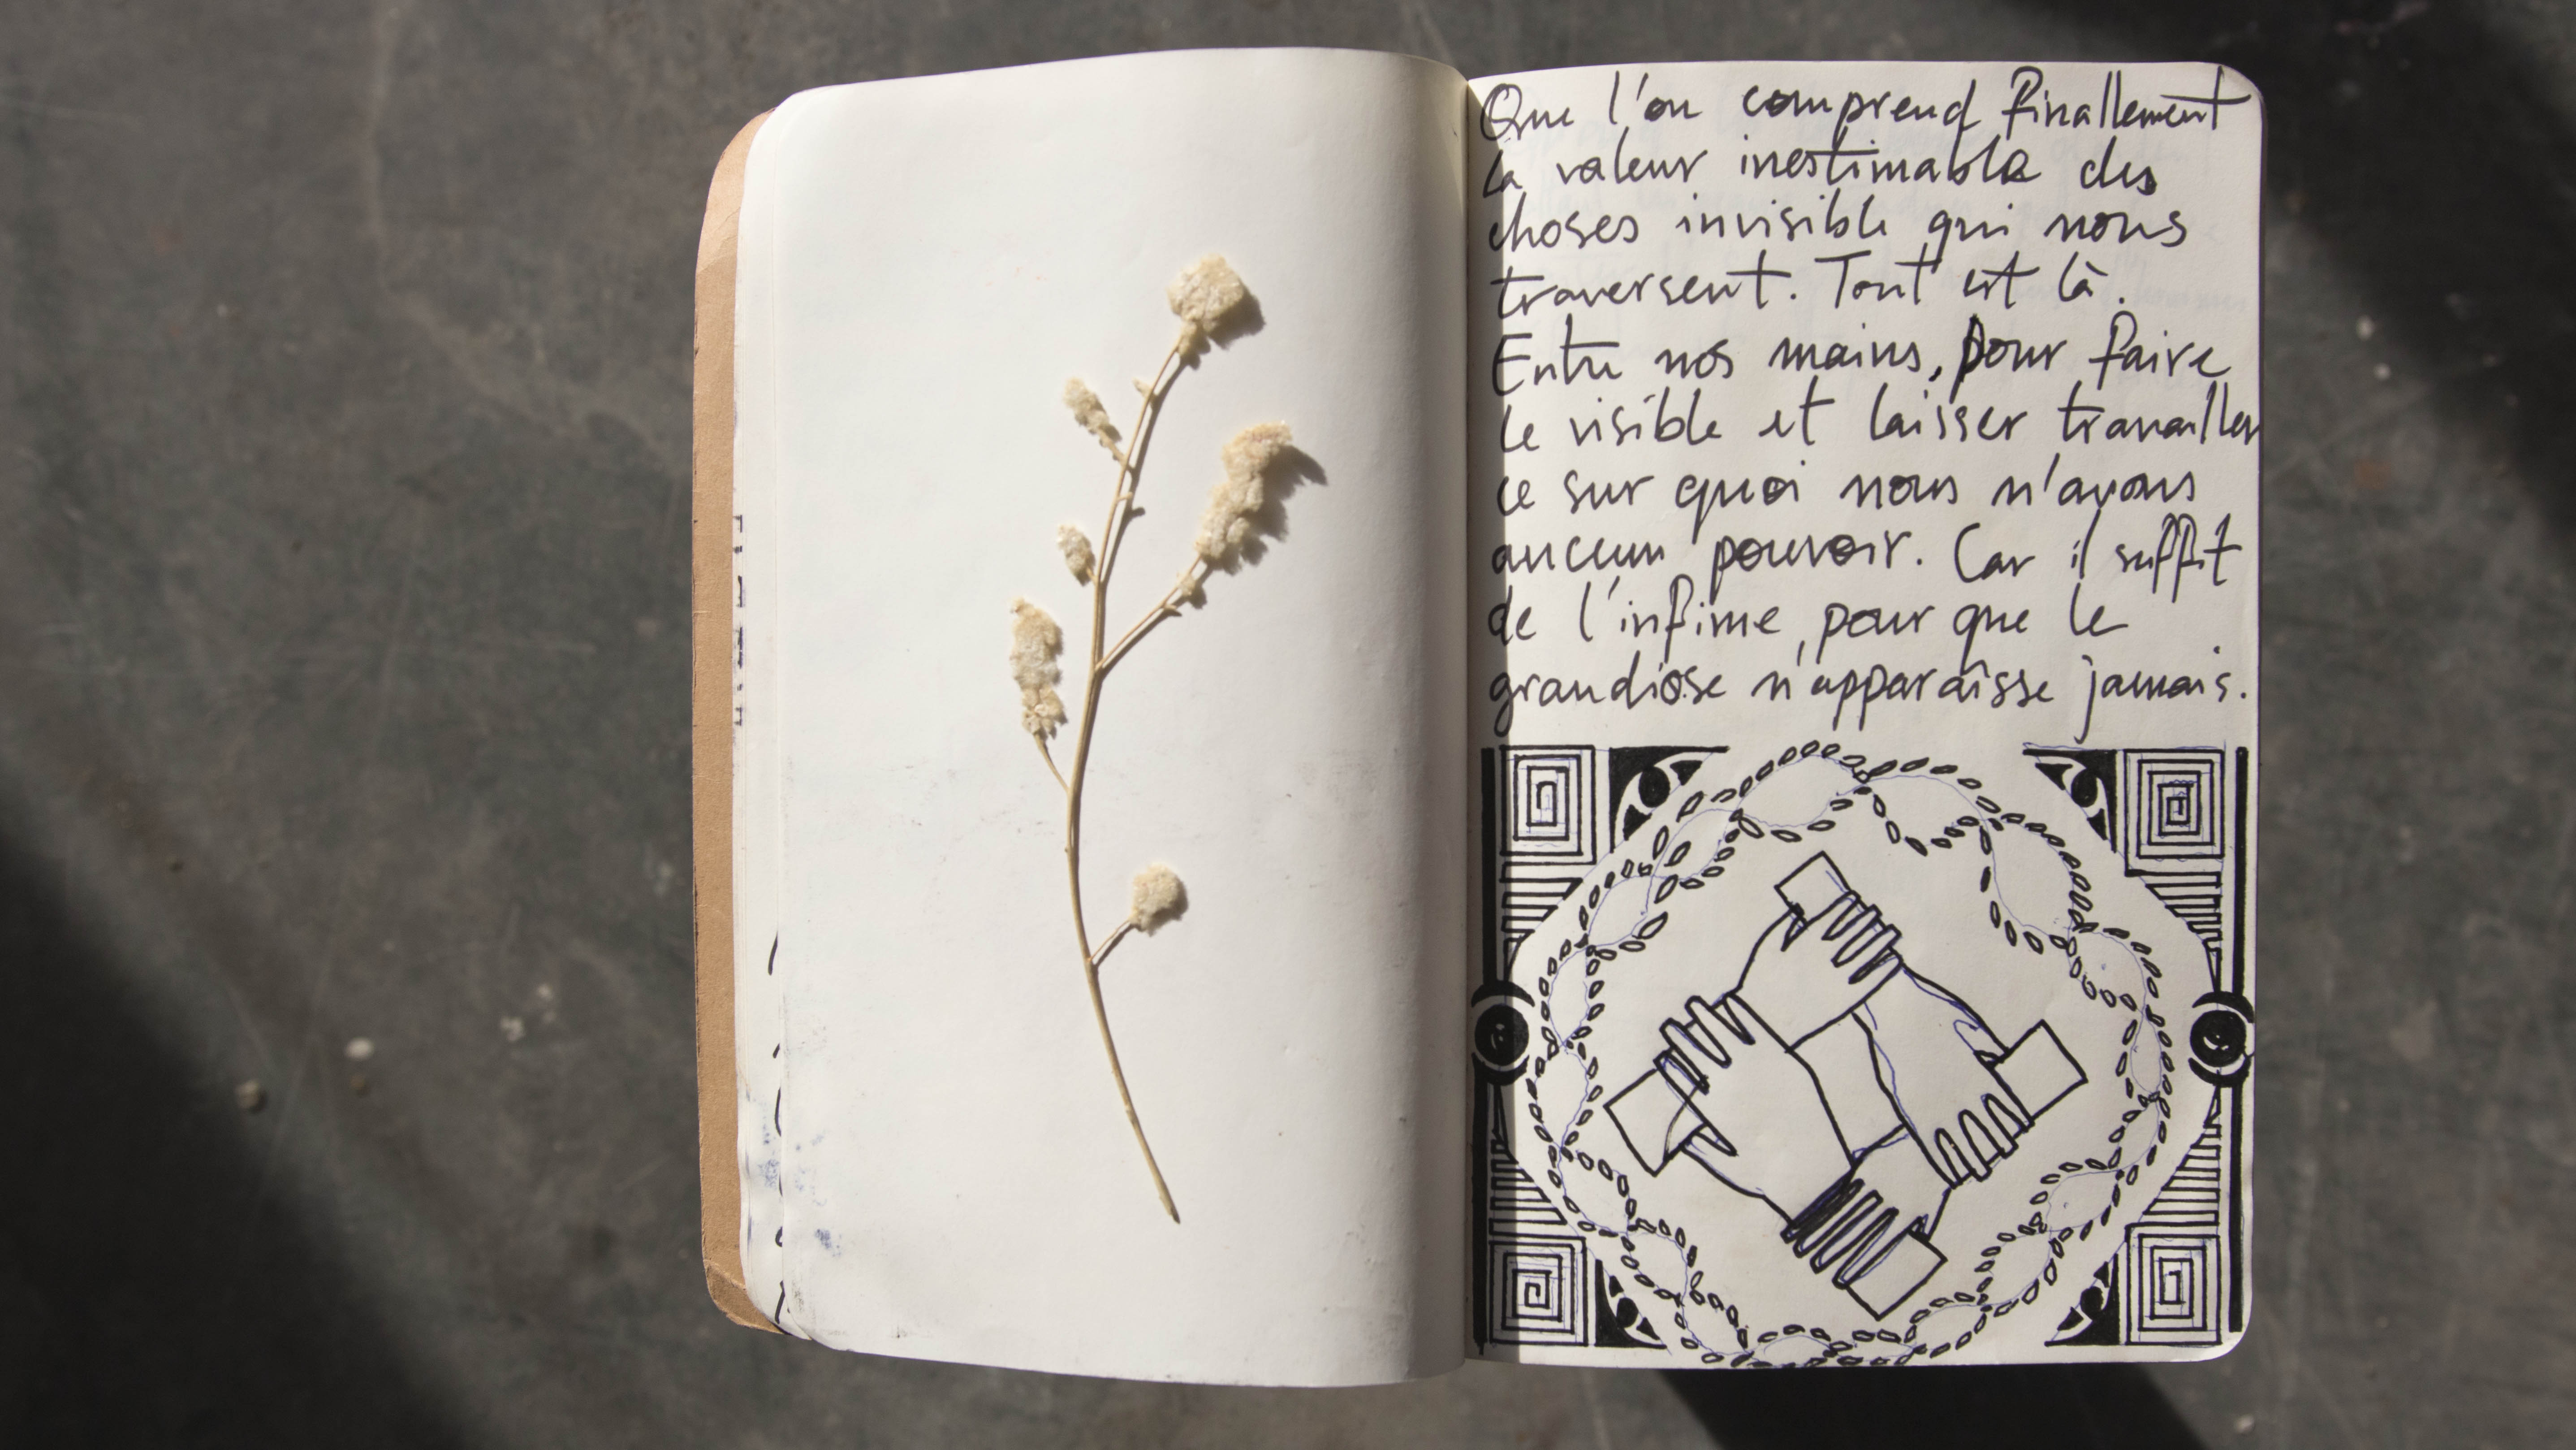 Que l'on comprend finallement
la valeur inestimable des
choses invisible qui nous
traversent. Tout est là.
Entre nos mains, pour faire
le visible et laisser travailler
ce sur quoi nous n'avons
aucun pouvoir. Car il suffit
de l'infime, pour que le
grandiose n'apparaîsse jamais.